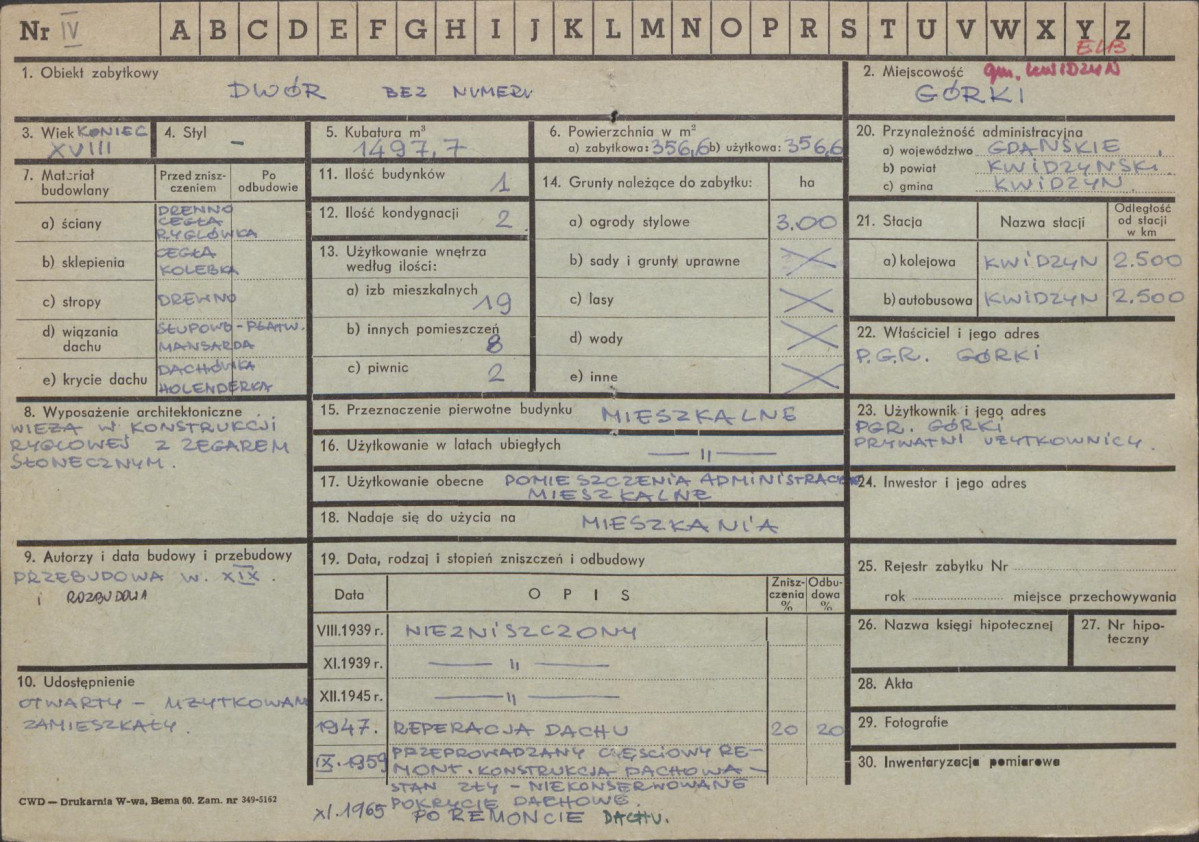 Nr IV A B C D E F G H I J K L M N O P R S T U V W X Y Z
ELB.
1. Obiekt zabytkowy
DWÓR BEZ NUMERU
2. Miejscowość gm. KWIDZYN
GÓRKI
3. Wiek KONIEC
XVIII
4. Styl
–
5. Kubatura m³
1497,7
6. Powierzchnia w m²
a) zabytkowa: 356,6 b) użytkowa: 356,6
20. Przynależność administracyjna
a) województwo GDAŃSKIE
b) powiat KWIDZYŃSKI
c) gmina KWIDZYN
7. Materiał budowlany
Przed zniszczeniem
Po odbudowie
a) ściany
DREWNO
CEGŁA
RYGLÓWKA
b) sklepienia
CEGŁA
KOLEBKA
c) stropy
DREWNO
d) wiązania dachu
SŁUPOWO-PŁATW.
MANSARDA
e) krycie dachu
DACHÓWKA
HOLENDERKA
11. Ilość budynków 1
12. Ilość kondygnacji 2
13. Użytkowanie wnętrza
według ilości:
a) izb mieszkalnych 19
b) innych pomieszczeń 8
c) piwnic 2
14. Grunty należące do zabytku: ha
a) ogrody stylowe 3.00
b) sady i grunty uprawne
c) lasy
d) wody
e) inne
21. Stacja Nazwa stacji Odległość od stacji w km
a) kolejowa KWIDZYN 2.500
b) autobusowa KWIDZYN 2.500
22. Właściciel i jego adres
P.G.R. GÓRKI
8. Wyposażenie architektoniczne
WIEŻA W KONSTRUKCJI
RYGLOWEJ Z ZEGAREM
SŁONECZNYM.
15. Przeznaczenie pierwotne budynku MIESZKALNE
16. Użytkowanie w latach ubiegłych — " —
17. Użytkowanie obecne POMIESZCZENIA ADMINISTRACYJNE
MIESZKALNE
18. Nadaje się do użycia na MIESZKANIA
23. Użytkownik i jego adres
PGR. GÓRKI
PRYWATNI UŻYTKOWNICY.
24. Inwestor i jego adres
9. Autorzy i data budowy i przebudowy
PRZEBUDOWA W. XIX.
i ROZBUDOWA
10. Udostępnienie
OTWARTY – UŻYTKOWANY
ZAMIESZKAŁY.
19. Data, rodzaj i stopień zniszczeń i odbudowy
Data OPIS Zniszczenia % Odbudowa %
VIII.1939 r. NIEZNISZCZONY
XI.1939 r. — " —
XII.1945 r. — " —
1947. REPERACJA DACHU 20 20
IX.1959 PRZEPROWADZANY CZĘŚCIOWY RE-
MONT. KONSTRUKCJA DACHOWA –
STAN ZŁY – NIEKONSERWOWANE
POKRYCIE DACHOWE.
XI.1965 PO REMONCIE DACHU.
25. Rejestr zabytku Nr
rok miejsce przechowywania
26. Nazwa księgi hipotecznej
27. Nr hipoteczny
28. Akta
29. Fotografie
30. Inwentaryzacja pomiarowa
CWD — Drukarnia W-wa, Bema 60. Zam. nr 349-5162